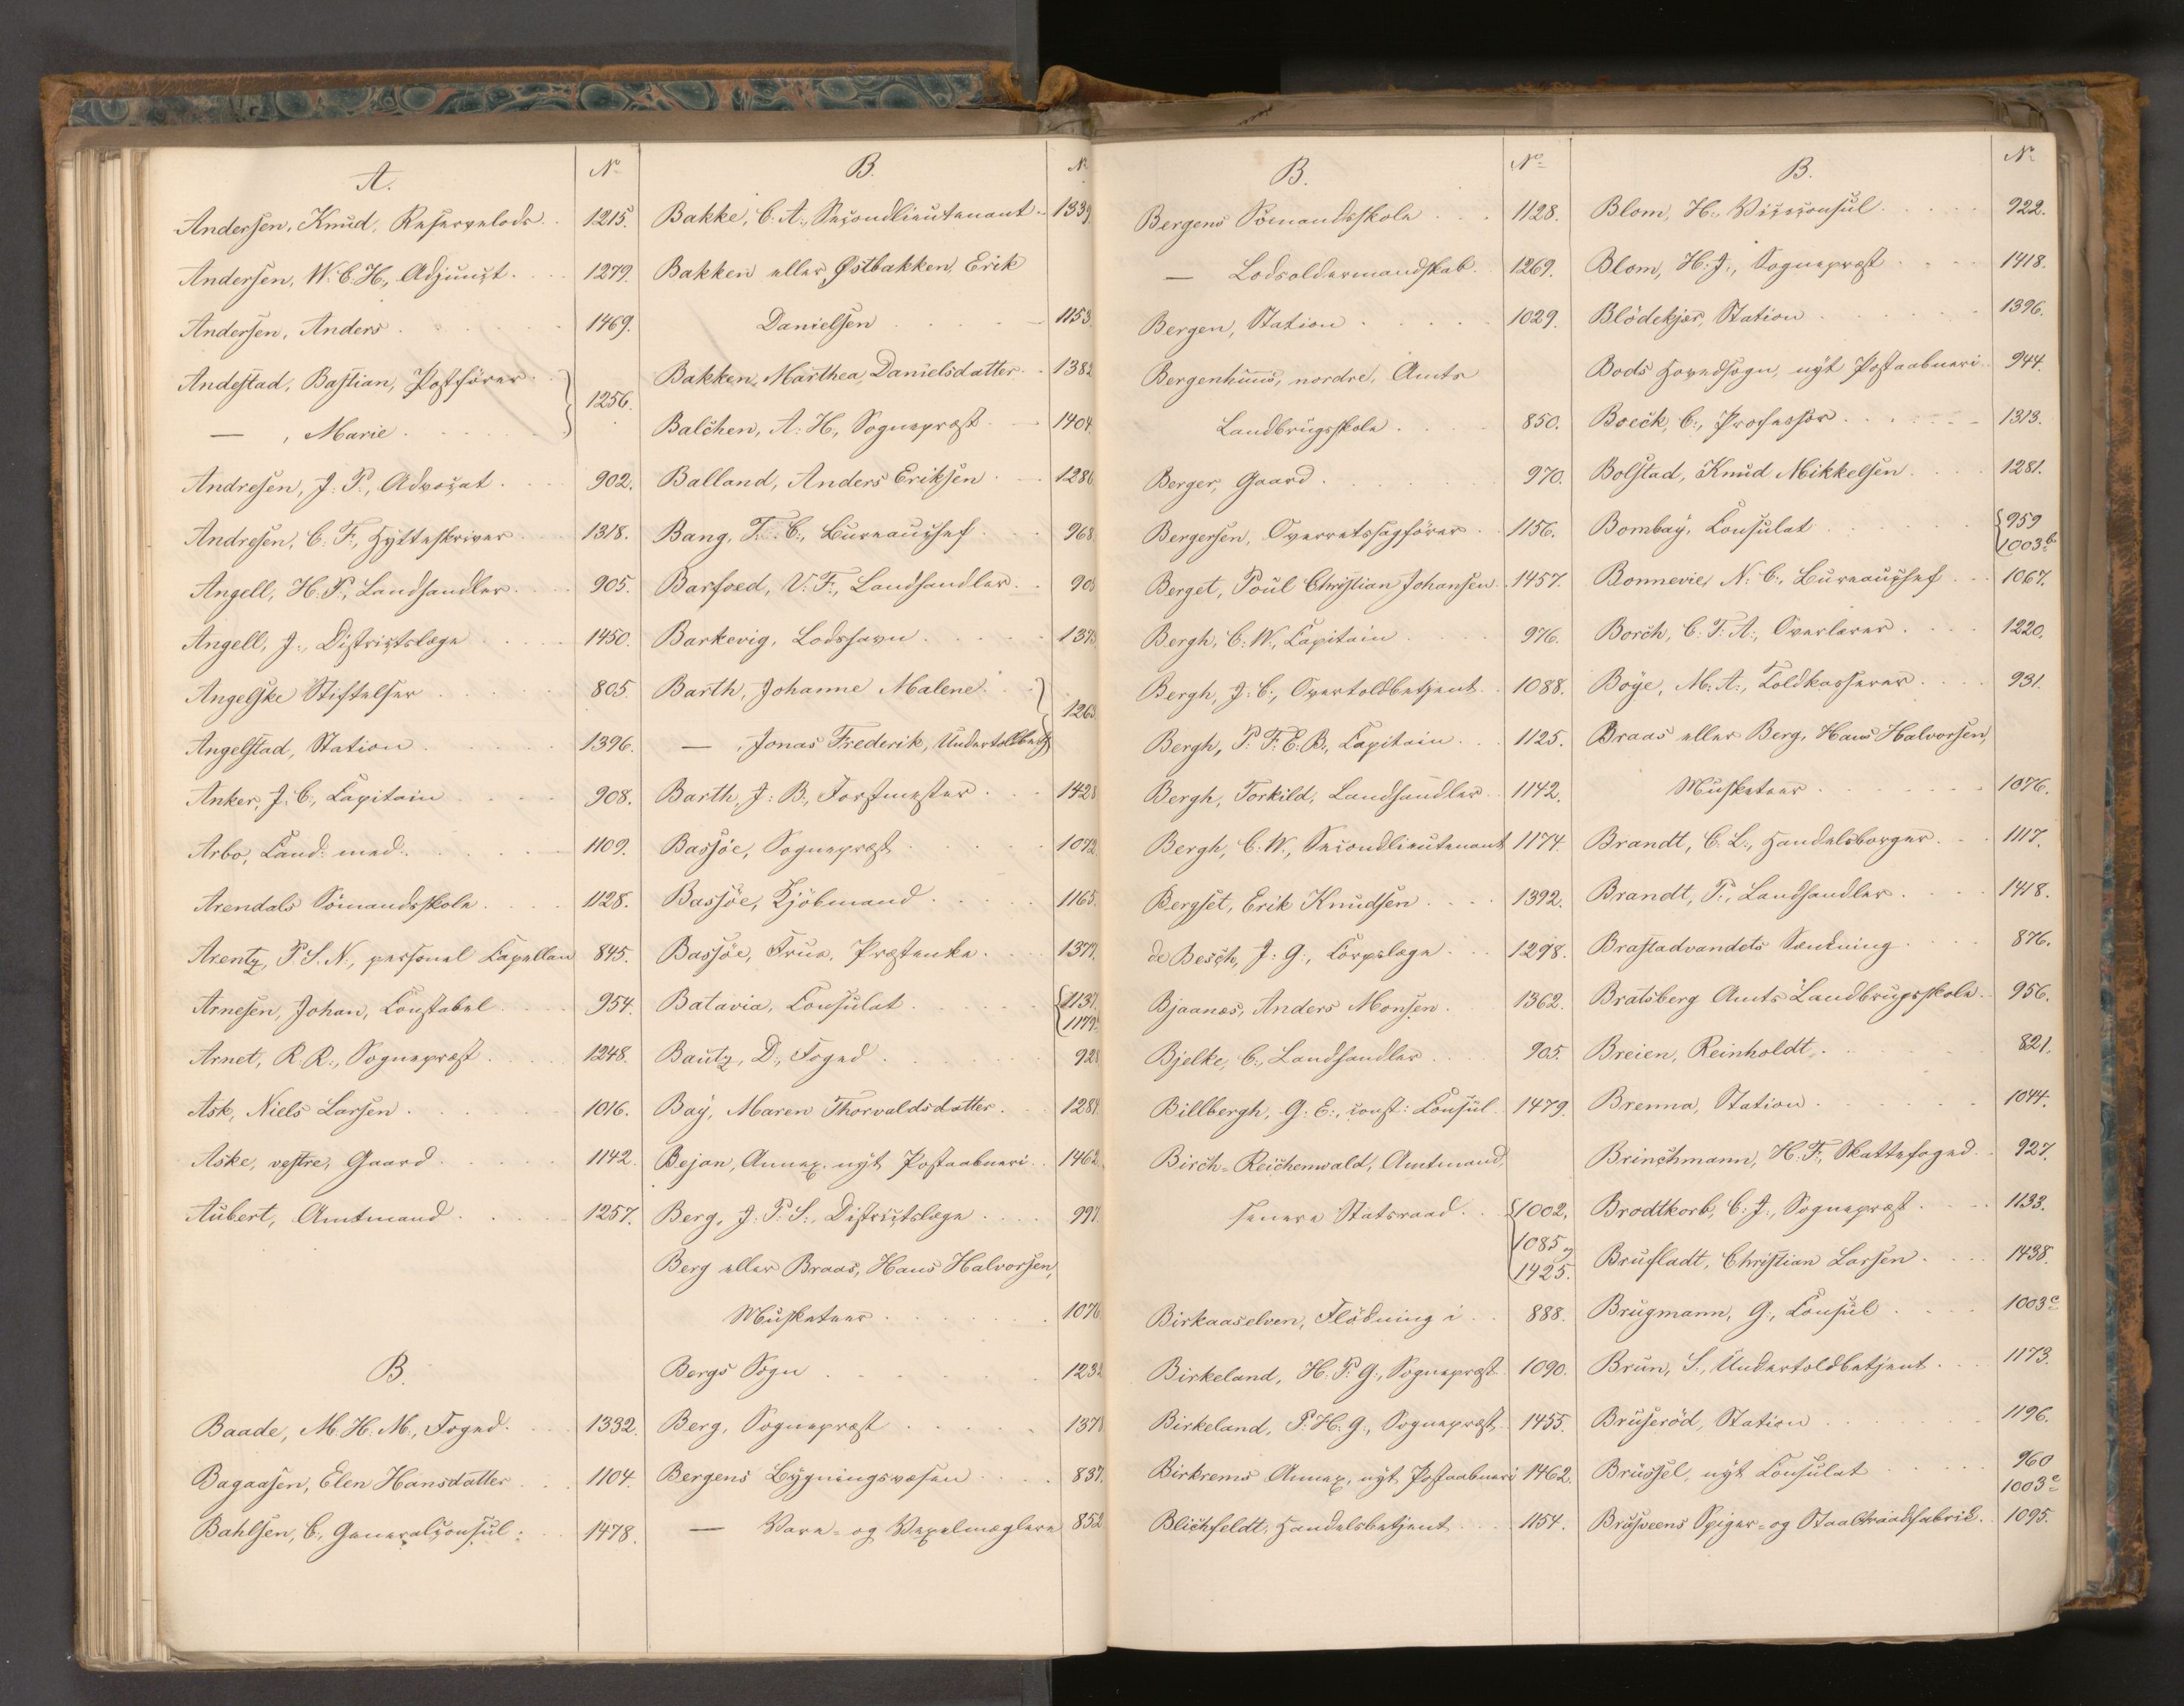 A. No
Andersen, Knud, Reservelods 1215.
Andersen, W. C. H., Adjunct. 1279.
Andersen, Anders 1469.
Andestad, Bastian, Postförer
— , Marie 1256.
Andresen, J. P., Advocat 902.
Andresen, C. F., Hytteskriver 1318.
Angell, H. P., Landhandler 905.
Angell, J., Districtslæge 1450.
Angelske Stiftelser 805.
Angelstad, Station 1396.
Anker, J. C., Capitain 908.
Arbo, Cand: med: 1109.
Arendals Sömandsskole 1128.
Arentz, P. S. N., personel Capellan 845.
Arnesen, Johan, Constabel 954.
Arnet, R. R., Sognepræst 1248.
Ask, Niels Larsen 1016.
Aske, vestre, Gaard 1142.
Aubert, Amtmand 1257.
B.
Baade, M. H. M., Foged 1332.
Bagaasen, Elen Hansdatter 1104.
Bahlsen, C., Generalconsul 1478.
B. No
Bakke, C. A., Secondlieutenant 1339.
Bakken eller Østbakken, Erik
Danielsen 1153.
Bakken, Marthea Danielsdatter 1382
Balchen, A. H., Sognepræst 1404.
Balland, Anders Eriksen 1286.
Bang, T. C., Bureauchef 968
Barfoed, V. F., Landhandler 905
Barkevig, Lodshavn 1375.
Barth, Johanne Malene
— , Jonas Frederik, Undertoldbetj 1263
Barth, J. B., Forstmester 1428
Bassöe, Sognepræst 1072
Bassöe, Kjöbmand 1165.
Bassöe, Frue, Præsteenke 1377.
Batavia, Consulat 1137.
1179.
Bautz, D., Foged 928
Bay, Maren Thorvaldsdatter 1281
Bejan, Annex, nyt Postaabneri 1462.
Berg, J. P. S., Districtslæge 997.
Berg eller Braas, Hans Halvorsen,
Musketeer 1076
Bergs Sogn 1232
Berg, Sognepræst 1378
Bergens Bygningsvæsen 837.
— Vare- og Vexelmæglere 852
B. No
Bergens Sömandsskole 1128.
— Lodsoldermandskab 1269.
Bergen, Station 1029.
Bergenhuus, nordre, Amts
Landbrugsskole 850.
Berger, Gaard 970.
Bergersen, Overretssagförer 1156.
Berget, Poul Christian Johansen 1457.
Bergh, C. W., Capitain 976.
Bergh, J. C., Overtoldbetjent 1088.
Bergh, P. F. E. B., Capitain 1125.
Bergh, Torkild, Landhandler 1142.
Bergh, C. W., Secondlieutenant 1174.
Bergset, Erik Knudsen 1392.
de Besch, J. G., Corpslæge 1298.
Bjaanæs, Anders Monsen 1362.
Bjelke, C., Landhandler 905.
Billbergh, G. E., const: Consul 1479.
Birch-Reichenwald, Amtmand,
senere Statsraad 1002,
1085,
1425.
Birkaaselven, Flödning i 888.
Birkeland, H. P. G., Sognepræst 1090.
Birkeland, P. H. G., Sognepræst 1455.
Birkrems Annex, nyt Postaabneri 1462.
Blichfeldt, Handelsbetjent 1154.
B. No
Blom, H., Viceconsul 922.
Blom, H. J., Sognepræst 1418.
Blödekjær, Station 1396.
Bods Hovedsogn, nyt Postaabneri 944.
Boeck, C., Professor 1313.
Bolstad, Knud Mikkelsen 1281.
Bombay, Consulat 959
1003b
Bonnevie, N. C., Bureauchef 1067.
Borch, C. T. A., Overlærer 1220.
Böye, M. A., Toldkasserer 931.
Braas eller Berg, Hans Halvorsen,
Musketeer 1076.
Brandt, C. L., Handelsborger 1117.
Brandt, P., Landhandler 1418.
Brastadvandets Sænkning 876.
Bratsberg Amts Landbrugsskole 956.
Breien, Reinholdt 821.
Brenna, Station 1044.
Brinchmann, H. F., Skattefoged 927.
Brodtkorb, C. J., Sognepræst 1133.
Brufladt, Christian Larsen 1438.
Brugmann, G., Consul 1003c
Brun, S., Undertoldbetjent 1173.
Bruseröd, Station 1196.
Brüssel, nyt Consulat 960
1003c
Brusveens Spiger- og Staaltraadfabrik 1095.